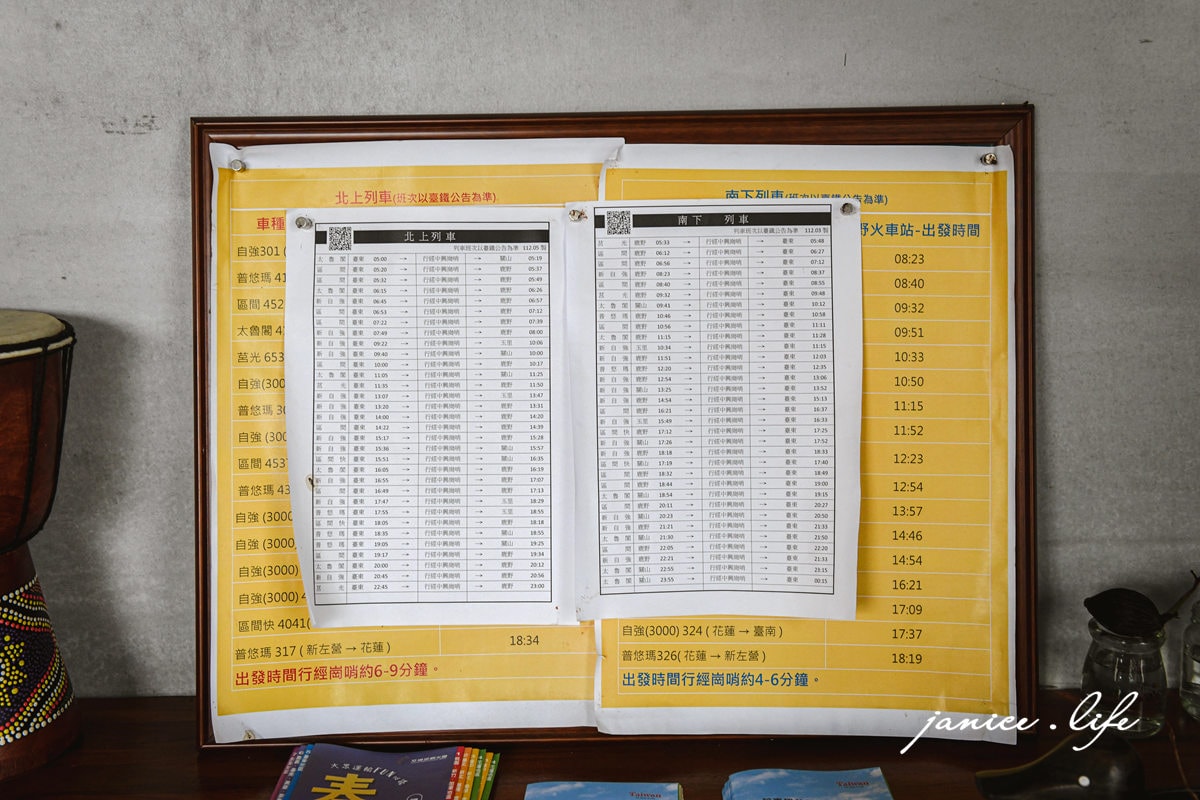 北上列車(班次以臺鐵公告為準)
車種
自強301 (
普悠瑪 41
區間 452
太魯閣 4
莒光 653
自強(300
普悠瑪 3
自強 (300
區間 453
普悠瑪 43
自強 (3000
自強 (3000
自強 (3000)
自強(3000) 4
區間快 4041(
普悠瑪 317 ( 新左營 → 花蓮 ) 18:34
出發時間行經崗哨約6-9分鐘。
北上列車
列車班次以臺鐵公告為準 112.05 製
太魯閣 臺東 05:00 → 行經中興崗哨 → 關山 05:19
區間 臺東 05:20 → 行經中興崗哨 → 鹿野 05:37
區間 臺東 05:32 → 行經中興崗哨 → 鹿野 05:49
太魯閣 臺東 06:15 → 行經中興崗哨 → 鹿野 06:26
新自強 臺東 06:45 → 行經中興崗哨 → 鹿野 06:57
區間 臺東 06:53 → 行經中興崗哨 → 鹿野 07:12
區間 臺東 07:22 → 行經中興崗哨 → 鹿野 07:39
新自強 臺東 07:49 → 行經中興崗哨 → 鹿野 08:00
新自強 臺東 09:22 → 行經中興崗哨 → 玉里 10:06
新自強 臺東 09:40 → 行經中興崗哨 → 關山 10:00
區間 臺東 10:00 → 行經中興崗哨 → 鹿野 10:17
太魯閣 臺東 11:05 → 行經中興崗哨 → 關山 11:25
莒光 臺東 11:35 → 行經中興崗哨 → 鹿野 11:50
新自強 臺東 13:07 → 行經中興崗哨 → 玉里 13:47
新自強 臺東 13:20 → 行經中興崗哨 → 鹿野 13:31
新自強 臺東 14:00 → 行經中興崗哨 → 鹿野 14:20
區間 臺東 14:22 → 行經中興崗哨 → 鹿野 14:39
新自強 臺東 15:17 → 行經中興崗哨 → 鹿野 15:28
新自強 臺東 15:36 → 行經中興崗哨 → 關山 15:57
區間快 臺東 15:51 → 行經中興崗哨 → 關山 16:35
太魯閣 臺東 16:05 → 行經中興崗哨 → 鹿野 16:19
新自強 臺東 16:55 → 行經中興崗哨 → 鹿野 17:07
區間 臺東 16:49 → 行經中興崗哨 → 鹿野 17:13
新自強 臺東 17:47 → 行經中興崗哨 → 玉里 18:29
普悠瑪 臺東 17:55 → 行經中興崗哨 → 玉里 18:55
區間快 臺東 18:05 → 行經中興崗哨 → 鹿野 18:18
普悠瑪 臺東 18:35 → 行經中興崗哨 → 關山 18:55
普悠瑪 臺東 19:05 → 行經中興崗哨 → 關山 19:25
區間 臺東 19:17 → 行經中興崗哨 → 鹿野 19:34
太魯閣 臺東 20:00 → 行經中興崗哨 → 鹿野 20:12
新自強 臺東 20:45 → 行經中興崗哨 → 鹿野 20:56
莒光 臺東 22:45 → 行經中興崗哨 → 鹿野 23:00
南下列車(班次以臺鐵公告為準)
野火車站-出發時間
08:23
08:40
09:32
09:51
10:33
10:50
11:15
11:52
12:23
12:54
13:57
14:46
14:54
16:21
17:09
自強(3000) 324 ( 花蓮 → 臺南 ) 17:37
普悠瑪326( 花蓮 → 新左營 ) 18:19
出發時間行經崗哨約4-6分鐘。
南下 列車
列車班次以臺鐵公告為準 112.03 製
莒光 鹿野 05:33 → 行經中興崗哨 → 臺東 05:48
區間 鹿野 06:12 → 行經中興崗哨 → 臺東 06:27
區間 鹿野 06:56 → 行經中興崗哨 → 臺東 07:12
新自強 鹿野 08:23 → 行經中興崗哨 → 臺東 08:37
區間 鹿野 08:40 → 行經中興崗哨 → 臺東 08:55
莒光 鹿野 09:32 → 行經中興崗哨 → 臺東 09:48
太魯閣 關山 09:41 → 行經中興崗哨 → 臺東 10:12
普悠瑪 鹿野 10:46 → 行經中興崗哨 → 臺東 10:58
區間 鹿野 10:56 → 行經中興崗哨 → 臺東 11:11
太魯閣 鹿野 11:15 → 行經中興崗哨 → 臺東 11:28
新自強 玉里 10:34 → 行經中興崗哨 → 臺東 11:15
新自強 鹿野 11:51 → 行經中興崗哨 → 臺東 12:03
普悠瑪 鹿野 12:20 → 行經中興崗哨 → 臺東 12:35
新自強 鹿野 12:54 → 行經中興崗哨 → 臺東 13:06
新自強 關山 13:25 → 行經中興崗哨 → 臺東 13:52
新自強 鹿野 14:54 → 行經中興崗哨 → 臺東 15:13
區間 鹿野 16:21 → 行經中興崗哨 → 臺東 16:37
新自強 玉里 15:49 → 行經中興崗哨 → 臺東 16:33
區間 鹿野 17:12 → 行經中興崗哨 → 臺東 17:25
新自強 關山 17:26 → 行經中興崗哨 → 臺東 17:52
新自強 鹿野 18:18 → 行經中興崗哨 → 臺東 18:33
區間快 關山 17:19 → 行經中興崗哨 → 臺東 17:40
區間 鹿野 18:32 → 行經中興崗哨 → 臺東 18:49
區間 鹿野 18:44 → 行經中興崗哨 → 臺東 19:00
太魯閣 關山 18:54 → 行經中興崗哨 → 臺東 19:15
區間 鹿野 20:11 → 行經中興崗哨 → 臺東 20:27
新自強 關山 20:23 → 行經中興崗哨 → 臺東 20:50
新自強 鹿野 21:21 → 行經中興崗哨 → 臺東 21:33
太魯閣 關山 21:30 → 行經中興崗哨 → 臺東 21:50
區間 鹿野 22:05 → 行經中興崗哨 → 臺東 22:20
新自強 鹿野 22:21 → 行經中興崗哨 → 臺東 21:33
太魯閣 關山 22:55 → 行經中興崗哨 → 臺東 23:15
太魯閣 關山 23:55 → 行經中興崗哨 → 臺東 00:15
春
Taiwan
Taiwan
janice.life